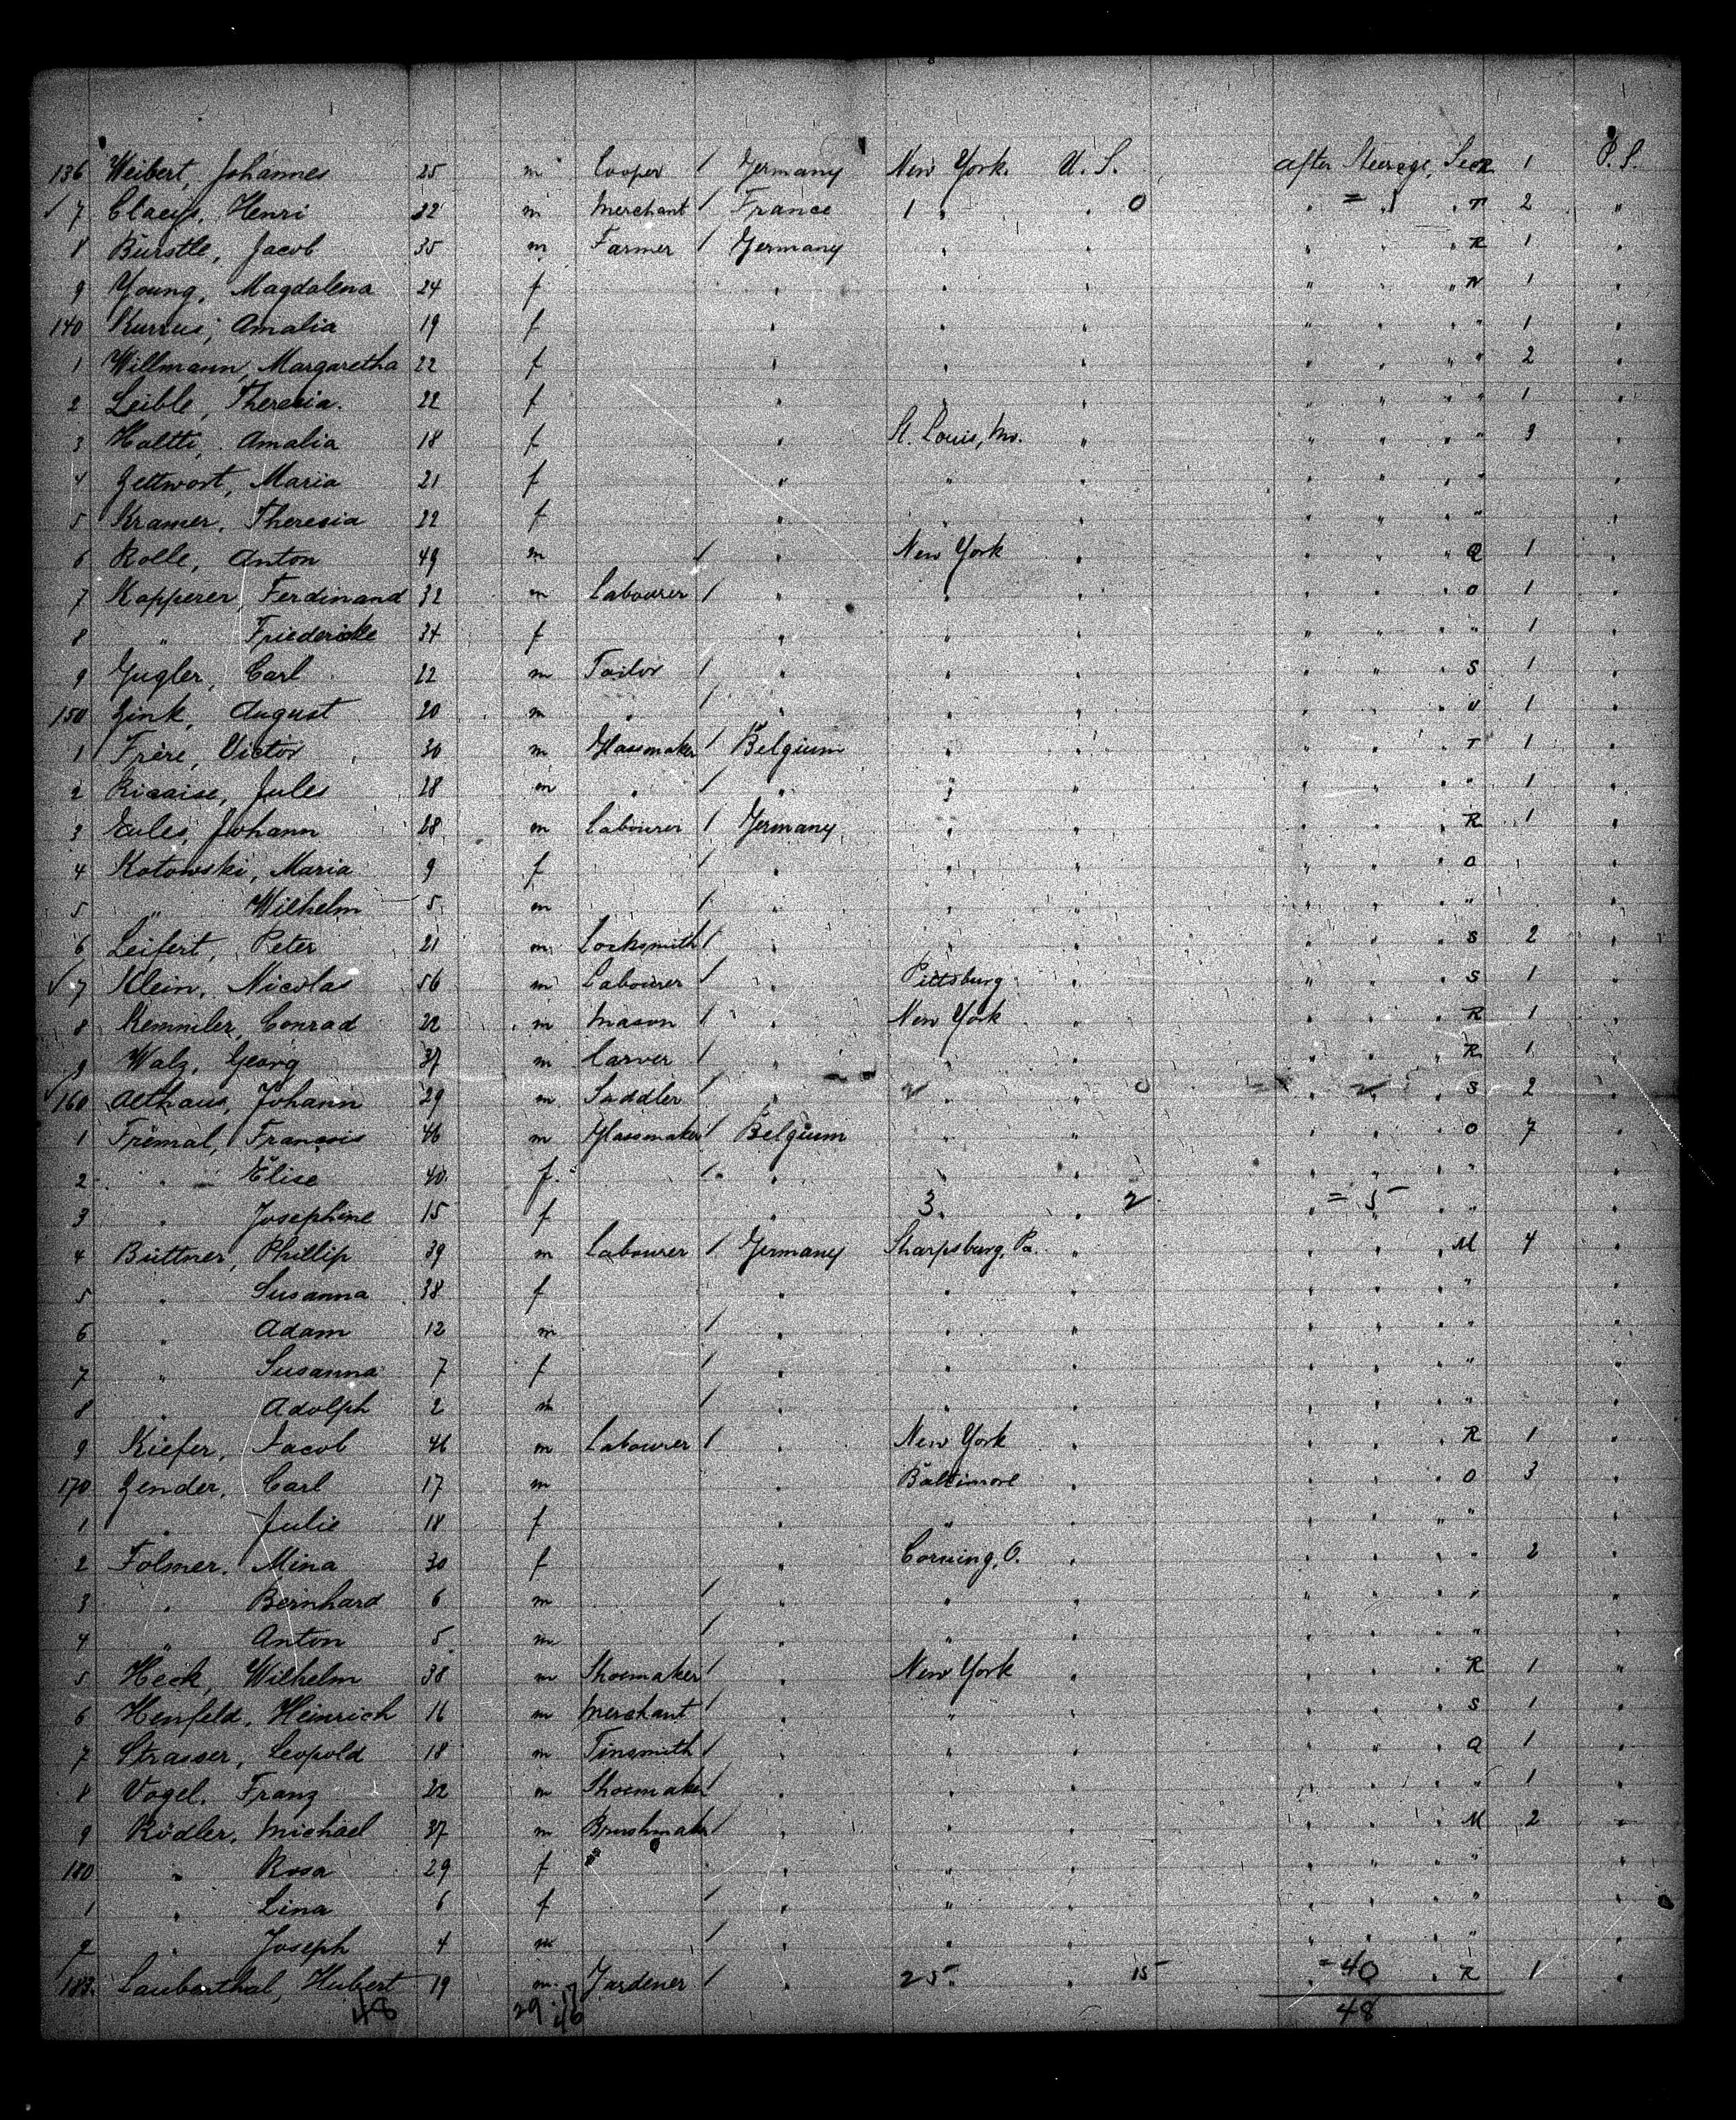 136 Weibert, Johannes 25 m Cooper / Germany New York. U. S. after Steerage, Sec R. 1 P. S.
✓ 7 Claeys, Henri 22 m Merchant / France 1 " " 0 " = 1 " " T 2 "
8 Bürstle, Jacob 35 m Farmer / Germany " " " " " R 1 "
9 Young, Magdalena 24 f " " " " " " N 1 "
140 Kurrus, Amalia 19 f " " " " " " " 1 "
1 Willmann, Margaretha 22 f " " " " " " " 2 "
2 Leible, Theresia. 22 f " " " " " " " 1 "
3 Amalia 18 f " St. Louis, Mo. " " " " " 3 "
4 Zettwort, Maria 21 f " " " " " " "
5 Kramer, Theresia 22 f " " " " " " "
6 Rolle, Anton 49 m / " New York " " " " Q 1 "
7 Kapperer, Ferdinand 32 m Labourer / " " " " " " O 1 "
8 " Friedericke 34 f " " " " " " " 1 "
9 Gugler, Carl 22 m Tailor / " " " " " " S 1 "
150 Zink, August 20 m " / " " " " " " U 1 "
1 Frère, Victor 30 m Glassmaker / Belgium " " " " " T 1 "
2 Ricaise, Jules 28 m " / " " " " " " " 1 "
3 Eules, Johann 28 m Labourer / Germany " " " " " R 1 "
4 Kotowski, Maria 9 f / " " " " " " O "
5 " Wilhelm 5 m / " " " " " " " "
6 Leifert, Peter 21 m Locksmith / " " " " " " S 2 "
✓ 7 Klein, Nicolas 56 m Labourer / " Pittsburg " " " " S 1 "
8 Kemmler, Conrad 22 m Mason / " New York " " " " R 1 "
9 Walz, Georg 37 m Carver / " " " " " " R 1 "
✓ 160 Althaus, Johann 29 m Saddler / " 2 " 0 " 2 " " S 2 "
1 Trémal, François 46 m Glassmaker / Belgium " " " " " O 7 "
2 " Elise 40 f / " " " " " " " "
3 " Josephine 15 f " 3 " 2 = 5 " " " "
4 Büttner, Phillip 39 m Labourer / Germany Sharpsburg, Pa. " " " " M 4 "
5 " Susanna 38 f " " " " " " " "
6 " Adam 12 m / " " " " " " " "
7 " Susanna 7 f / " " " " " " " "
8 " Adolph 2 m / " " " " " " " "
9 Kiefer, Jacob 46 m Labourer / " New York " " " " R 1 "
170 Zender, Carl 17 m " Baltimore " " " " O 3 "
1 " Julie 18 f " " " " " " " "
2 Folmer, Mina 30 f " Corning, O. " " " " " 2 "
3 " Bernhard 6 m / " " " " " " " "
4 " Anton 5 m / " " " " " " " "
5 Heck, Wilhelm 38 m Shoemaker / " New York " " " " R 1 "
6 Henfeld, Heinrich 16 m Merchant / " " " " " " S 1 "
7 Strasser, Leopold 18 m Tinsmith / " " " " " " Q 1 "
8 Vogel, Franz 22 m Shoemaker / " " " " " " " 1 "
9 Rödler, Michael 37 m Brushmaker / " " " " " " M 2 "
180 " Rosa 29 f " " " " " " " "
1 " Lina 6 f / " " " " " " " "
2 " Joseph 4 m / " " " " " " " "
183. Laubarthal, Hubert 19 m Gardener / " 25 " 15 = 40 " R 1 "
48 29 48